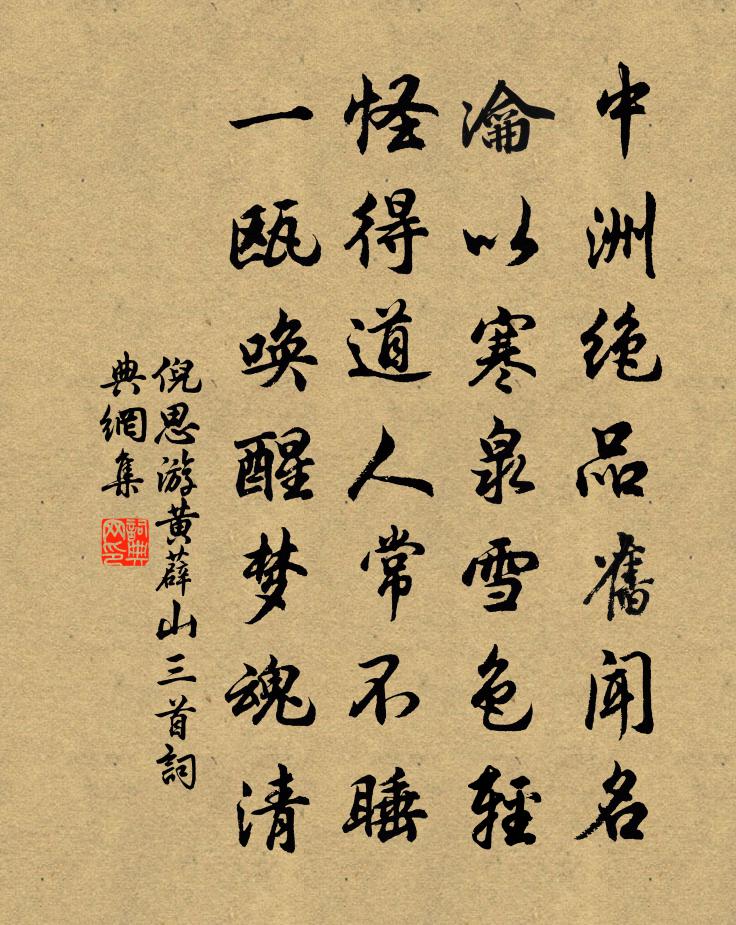 中洲绝品舊闻名
瀹以寒泉雪色輕
怪得道人常不睡
一瓯唤醒梦魂清
倪思游黄薜山三首詞
典網集
詞典
网印